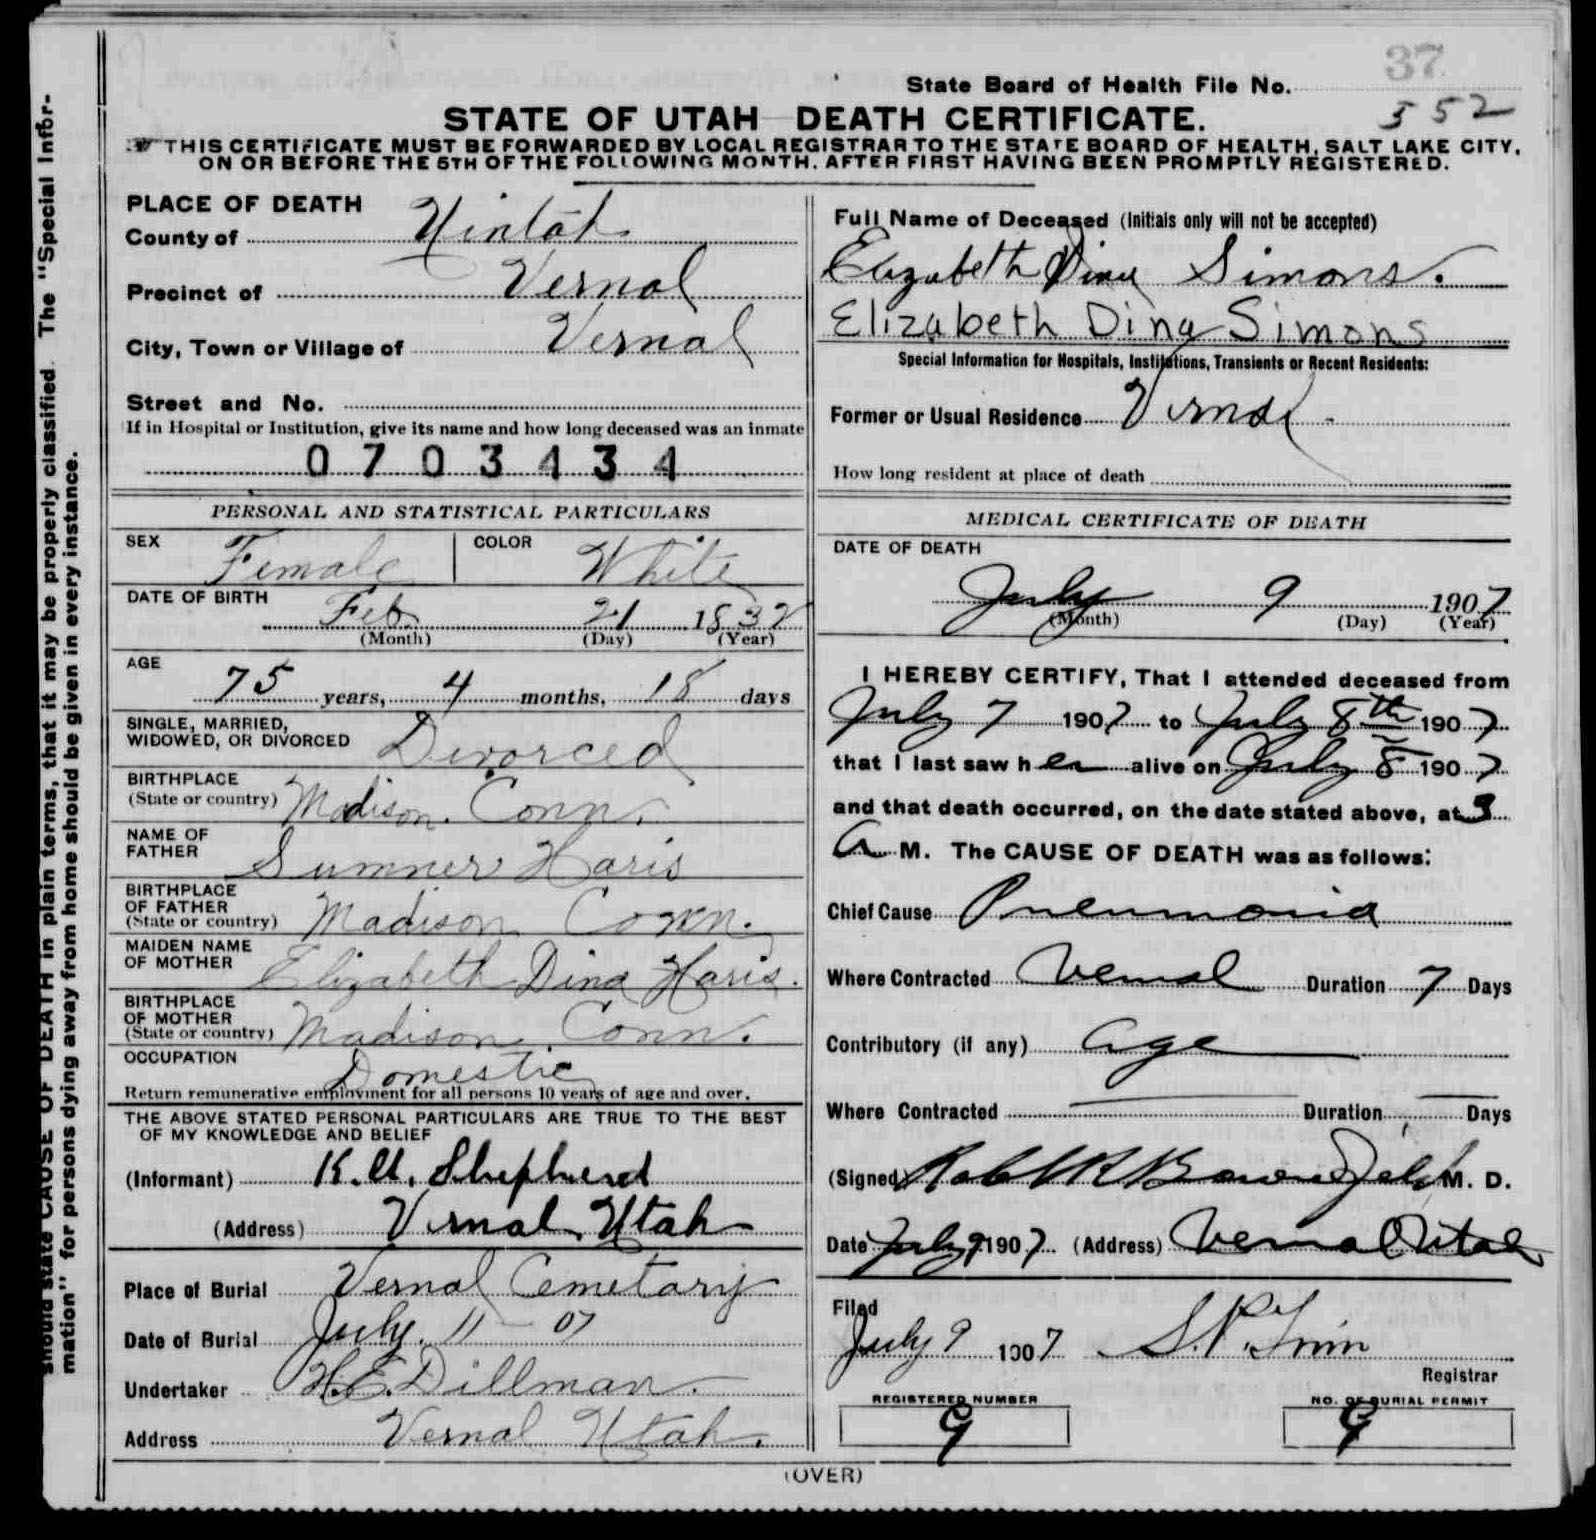 37
State Board of Health File No.
352
STATE OF UTAH DEATH CERTIFICATE.
THIS CERTIFICATE MUST BE FORWARDED BY LOCAL REGISTRAR TO THE STATE BOARD OF HEALTH, SALT LAKE CITY,
ON OR BEFORE THE 5TH OF THE FOLLOWING MONTH. AFTER FIRST HAVING BEEN PROMPTLY REGISTERED.
PLACE OF DEATH
County of Uintah
Precinct of Vernal
City, Town or Village of Vernal
Street and No.
If in Hospital or Institution, give its name and how long deceased was an inmate
0703434
PERSONAL AND STATISTICAL PARTICULARS
SEX Female COLOR White
DATE OF BIRTH
Feb 21 1832
(Month) (Day) (Year)
AGE
75 years, 4 months, 18 days
SINGLE, MARRIED,
WIDOWED, OR DIVORCED Divorced
BIRTHPLACE
(State or country) Madison. Conn.
NAME OF
FATHER Sumner Haris
BIRTHPLACE
OF FATHER
(State or country) Madison Conn.
MAIDEN NAME
OF MOTHER Elizabeth Dina Haris.
BIRTHPLACE
OF MOTHER
(State or country) Madison. Conn.
OCCUPATION
Domestic
Return remunerative employment for all persons 10 years of age and over.
THE ABOVE STATED PERSONAL PARTICULARS ARE TRUE TO THE BEST
OF MY KNOWLEDGE AND BELIEF
(Informant) Shepherd
(Address) Vernal Utah
Place of Burial Vernal Cemetary
Date of Burial July. 11 - 07
Undertaker H.E. Dillman.
Address Vernal Utah.
Full Name of Deceased (Initials only will not be accepted)
Elizabeth Dina Simons.
Elizabeth Dina Simons
Special Information for Hospitals, Institutions, Transients or Recent Residents:
Former or Usual Residence Vernal.
How long resident at place of death
MEDICAL CERTIFICATE OF DEATH
DATE OF DEATH
July 9 1907
(Month) (Day) (Year)
I HEREBY CERTIFY, That I attended deceased from
July 7 1907 to July 8th 1907
that I last saw her alive on July 8 1907
and that death occurred, on the date stated above, at 3
A M. The CAUSE OF DEATH was as follows:
Chief Cause Pneumonia
Where Contracted Vernal Duration 7 Days
Contributory (if any) Age
Where Contracted Duration Days
(Signed) M. D.
Date July 9 1907 (Address) Vernal Utah
Filed
July 9 1907
Registrar
REGISTERED NUMBER
9
NO. OF BURIAL PERMIT
9
(OVER)
should state CAUSE OF DEATH in plain terms, that it may be properly classified. The "Special Infor-
mation" for persons dying away from home should be given in every instance.